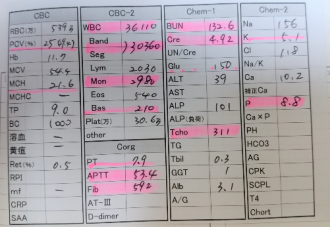 CBC CBC-2 Chem-1 Chem-2
RBC(万) WBC 36110 BUN 132.6 Na 156
PCV(%) Band Cre 4.92 K 5.1
Hb 11.7 Seg 30360 UN/Cre Cl
MCV 54.4 Lym 2030 Glu 150 Na/K
MCH 21.6 Mon ALT 39 Ca 10.2
MCHC Eos 540 AST 補正Ca
TP 9.0 Bas 210 ALP 101 P 8.8
BC Plat(万) 30.6 ALP(負荷) Ca×P
溶血 other Tcho 311 PH
黄疸 Corg TG HCO3
Ret(%) 0.5 PT 7.9 Tbil 0.3 AG
RPI APTT 53.4 GGT 1 CPK
mf Fib 592 Alb 3.1 SCPL
CRP AT-III A/G T4
SAA D-dimer Chort